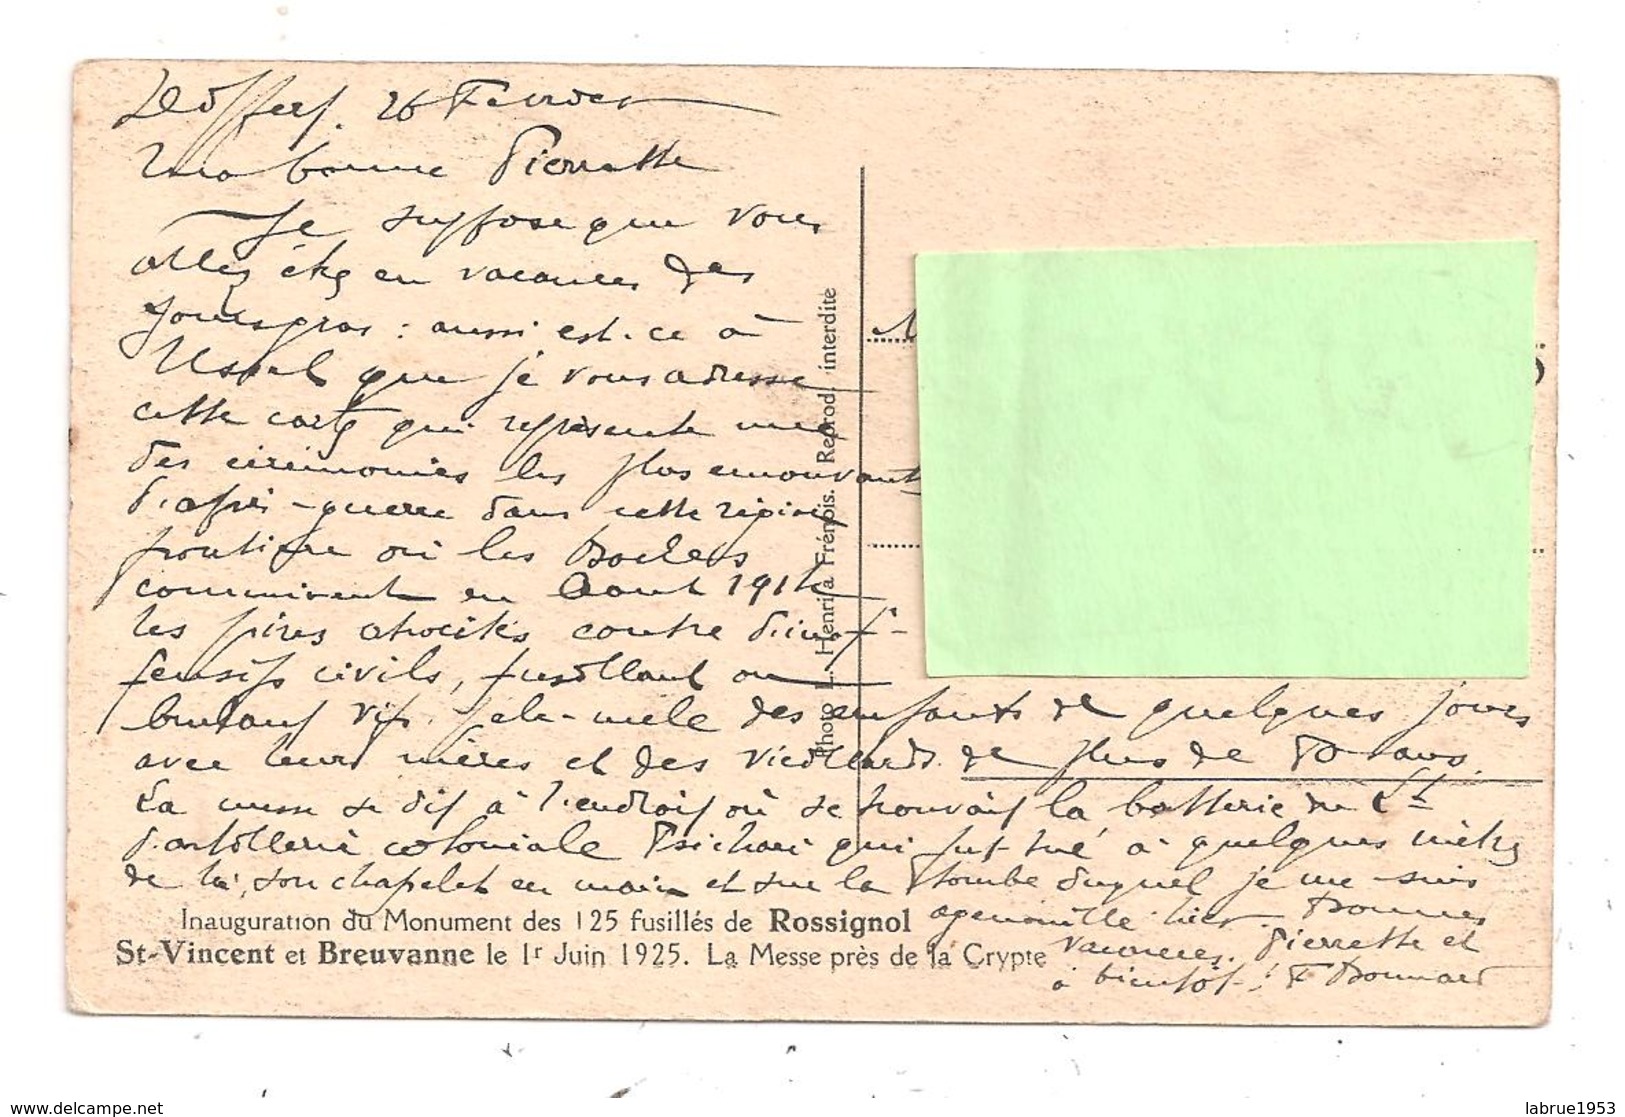 26 Fevrier
Ma bonne Pierrette
Je suppose que vous
allez être en vacances des
jours gras : aussi est-ce à
Ussel que je vous adresse
cette carte qui représente une
des cérémonies les plus émouvantes
d'après-guerre dans cette région
frontière où les Boches
commirent en Aout 1914
les pires atrocités contre d'inof-
fensifs civils, fusillant ou
brulant vifs pele-mele des enfants de quelques jours
avec leurs mères et des vieillards de plus de 80 ans.
La messe se dit à l'endroit où se trouvait la batterie du Lt
d'artillerie coloniale Psichari qui fut tué à quelques mètres
de là, son chapelet en main et sur la tombe duquel je me suis
agenouillé hier. Bonnes
vacances, Pierrette et
à bientôt ! F Bonnard
Photo L. Henri, a Frénois. Reprod. interdite
Inauguration du Monument des 125 fusillés de Rossignol
St-Vincent et Breuvanne le 1r Juin 1925. La Messe près de la Crypte
www.delcampe.net
labrue1953